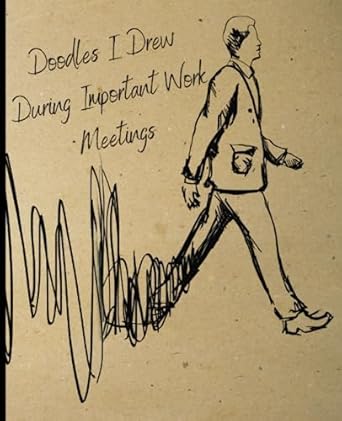 Doodles I Drew
During Important Work
Meetings